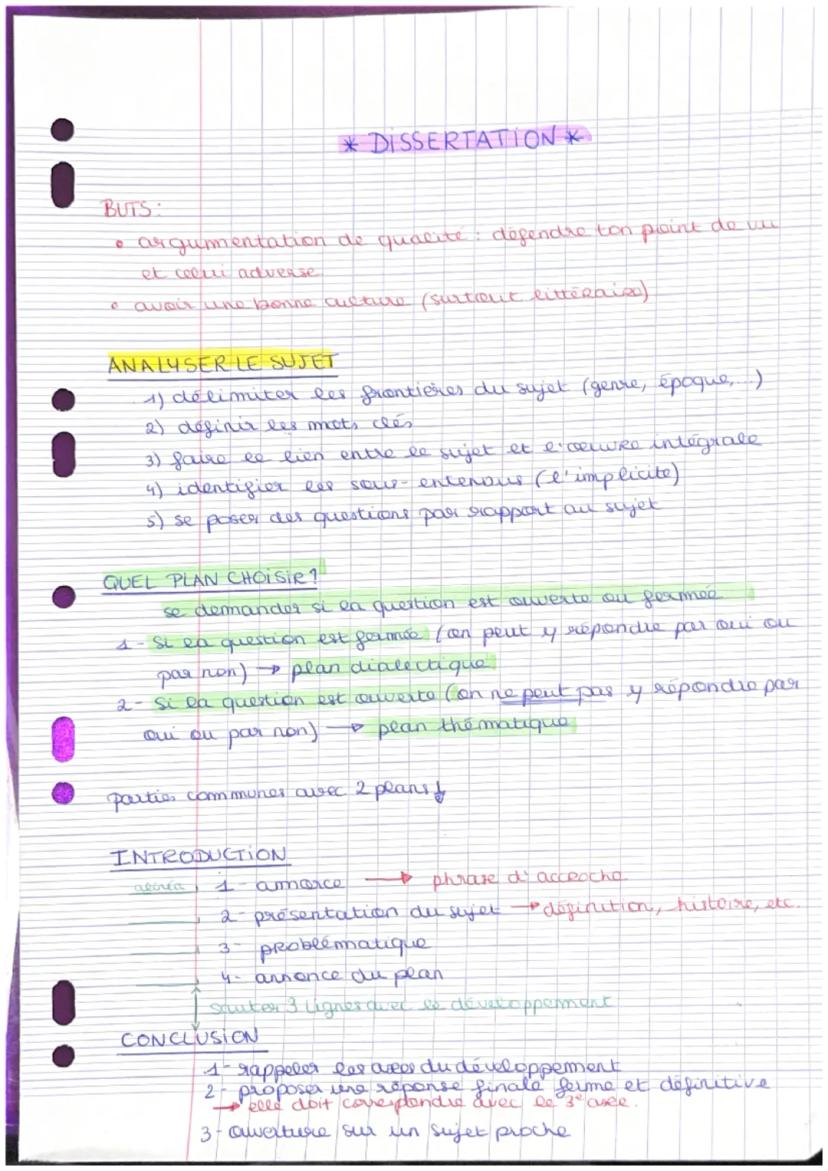 * DISSERTATION *
BUTS :
• argumentation de qualité : défendre ton point de vu
et celui adverse
• avoir une bonne culture (surtout littéraire)
ANALYSER LE SUJET
1) délimiter les frontières du sujet (genre, époque,...)
2) définir les mots clés
3) faire le lien entre le sujet et l'œuvre intégrale
4) identifier les sous-entenous (l'implicite)
5) se poser des questions par rapport au sujet
QUEL PLAN CHOISIR ?
se demander si la question est ouverte ou fermée
1- Si la question est fermée (on peut y répondre par oui ou
par non) → plan dialectique
2- si la question est ouverte (on ne peut pas y répondre par
oui ou par non) → plan thématique
parties communes avec 2 plans ↓
INTRODUCTION
alinéa 1- amorce → phrase d'accroche
2- présentation du sujet → définition, histoire, etc.
3- problématique
4- annonce du plan
sauter 3 lignes avec le développement
CONCLUSION
1- rappeler les axes du développement
2- proposer une réponse finale ferme et définitive
→ elle doit correspondre avec le 3e axe.
3- ouverture sur un sujet proche